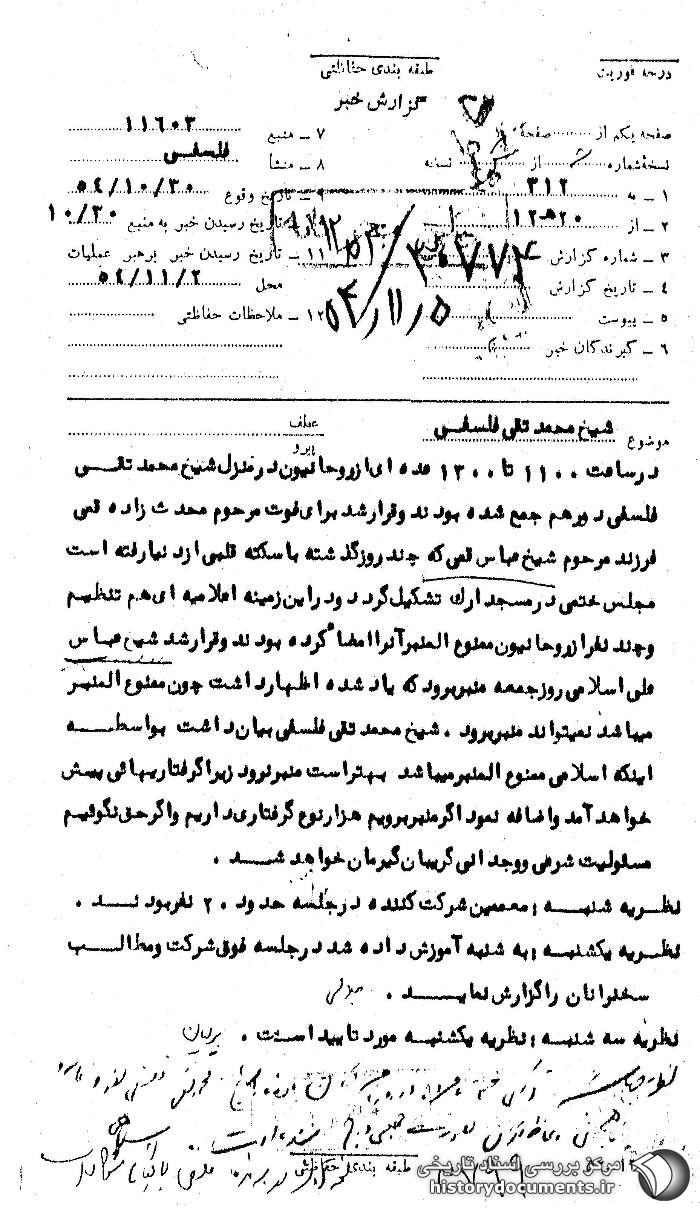 درجه فوریت
طبقه بندی حفاظتی
گزارش خبر
صفحه یکم از صفحه
نسخه شماره از نسخه
۱ – به ۳۱۲
۲ – از ۲۰ هـ ۱۲
۳ – شماره گزارش ۳۰۷۷۴
۴ – تاریخ گزارش
۵ – پیوست
۶ – گیرندگان خبر
۷ – منبع ۱۱۶۰۳
۸ – منشأ فلسفی
۹ – تاریخ وقوع ۵۴/۱۰/۳۰
تاریخ رسیدن خبر به منبع ۱۰/۳۰
۱۱ – تاریخ رسیدن خبر برهبر عملیات
محل ۵۴/۱۱/۲
۱۲ – ملاحظات حفاظتی
۵۴/۱۱/۵
موضوع شیخ محمد تقی فلسفی
عطف
پیرو
در ساعت ۱۱۰۰ تا ۱۳۰۰ عده ای از روحانیون در منزل شیخ محمد تقی
فلسفی دور هم جمع شده بودند و قرار شد برای فوت مرحوم محدث زاده قمی
فرزند مرحوم شیخ عباس قمی که چند روز گذشته با سکته قلبی از دنیا رفته است
مجلس ختمی در مسجد ارك تشکیل گردد و در این زمینه اعلامیه ای هم تنظیم
و چند نفر از روحانیون ممنوع المنبر آنرا امضاء کرده بودند و قرار شد شیخ عباس
علی اسلامی روز جمعه منبر برود که یاد شده اظهار داشت چون ممنوع المنبر
میباشد نمیتواند منبر برود . شیخ محمد تقی فلسفی بیان داشت بواسطه
اینکه اسلامی ممنوع المنبر میباشد بهتر است منبر نرود زیرا گرفتاریهائی پیش
خواهد آمد و اضافه نمود اگر منبر برویم هزار نوع گرفتاری داریم و اگر حق نگوئیم
مسئولیت شرعی و وجدانی گریبان گیرمان خواهد شد .
نظریه شنبه : معممین شرکت کننده در جلسه حدود ۲۰ نفر بودند .
نظریه یکشنبه : به شنبه آموزش داده شد در جلسه فوق شرکت و مطالب
سخنرانان را گزارش نماید .
نظریه سه شنبه : نظریه یکشنبه مورد تایید است .
طبقه بندی حفاظتی
مرکز بررسی اسناد تاریخی
historydocuments.ir